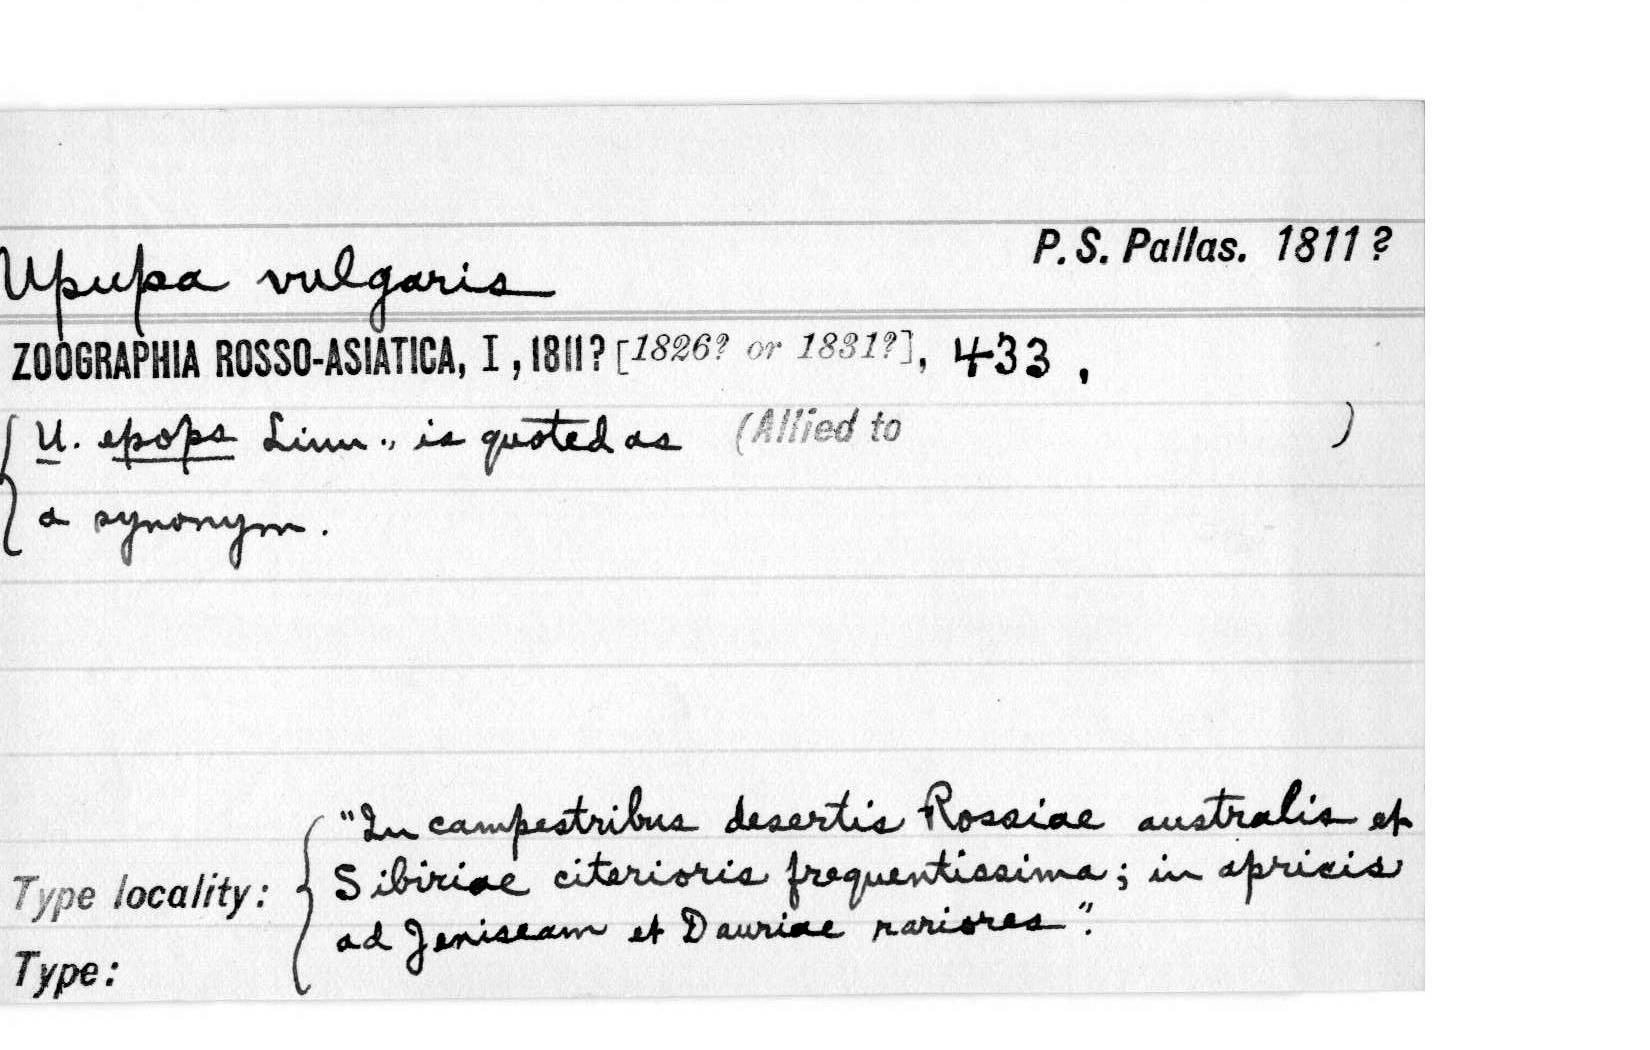 P. S. Pallas. 1811?
Upupa vulgaris
ZOOGRAPHIA ROSSO-ASIATICA, I, 1811? [1826? or 1831?], 433,
U. epops Linn., is quoted as (Allied to )
a synonym.
"In campestribus desertis Rossiae australis et
Sibiriae citerioris frequentissima; in apricis
ad Jeniseam et Dauriae rariores".
Type locality:
Type: